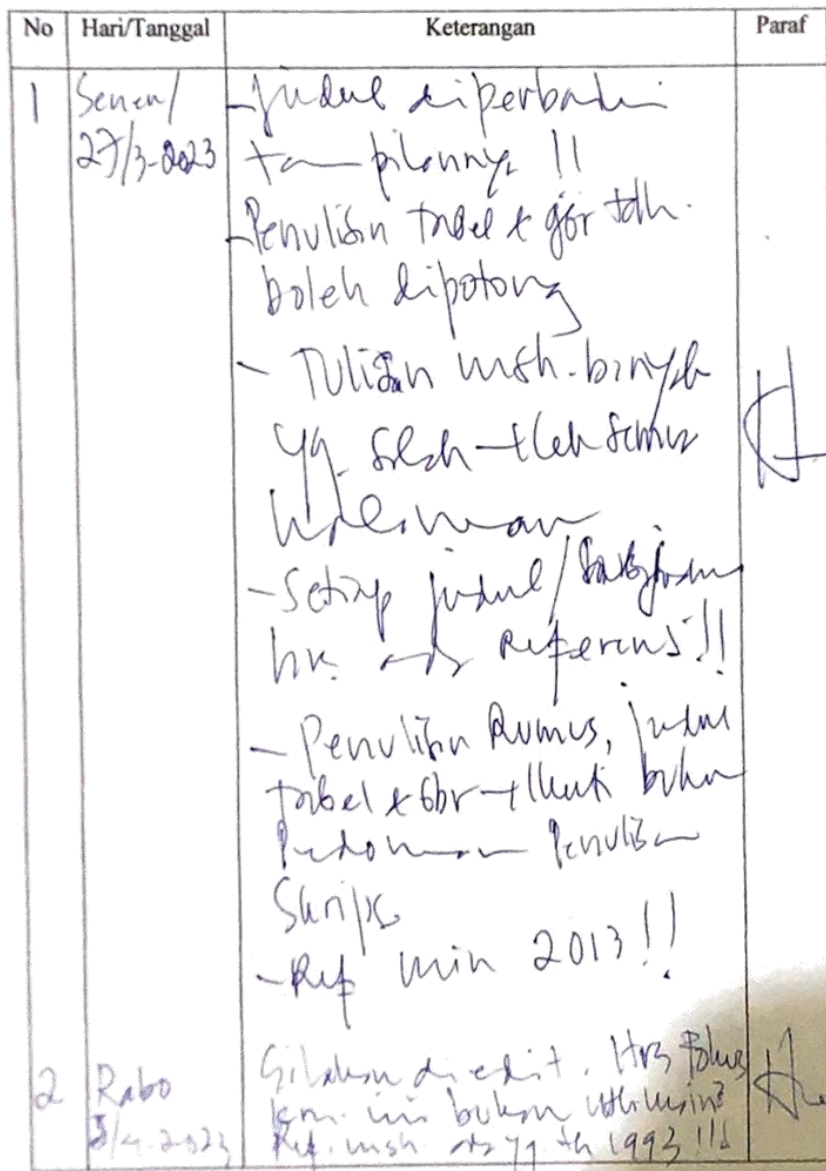 No Hari/Tanggal Keterangan Paraf
1 Senen/ - Judul diperbaiki
27/3-2023 tampilannya !!
- Penulisan tabel & gbr tdk.
boleh dipotong
- Tulisan msh. banyak
yg. salah → cek semua
halaman
- Setiap judul/
hrs. ada Referensi !!
- Penulisan Rumus, judul
tabel & Gbr → ikuti buku
Pedoman Penulisan
Skripsi
- Ref min 2013 !!
2 Rabo Silahkan diedit. Hrs fokus
5/4.2023 krn. ini bukan
Ref. msh ada yg th 1993 !!!